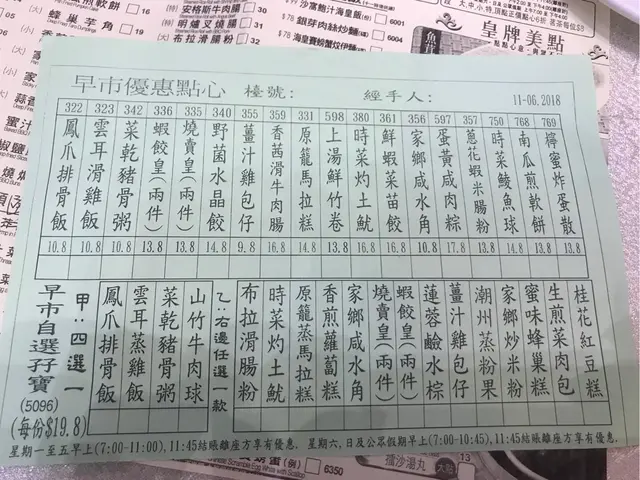 煎軟餅
蜂巢芋角
家
蒜香
蜜汁
燒
安格斯牛肉腸 30
明爐叉燒腸 31
布拉滑腸粉 32
$79 沙窩鮑汁海皇飯(份) 6001
$78 銀芽肉絲炒麵(份) 6004
皇牌美點
早市優惠點心 檯號: 經手人: 11-06.2018
322 323 342 336 335 340 355 359 331 598 380 361 356 597 357 750 768 769
鳳爪排骨飯
雲耳滑雞飯
菜乾豬骨粥
蝦餃皇(兩件)
燒賣皇(兩件)
野菌水晶餃
薑汁雞包仔
香茜滑牛肉腸
原籠馬拉糕
上湯鮮竹卷
時菜灼土魷
鮮蝦菜苗餃
家鄉咸水角
蛋黃咸肉粽
蔥花蝦米腸粉
時菜鯪魚球
南瓜煎軟餅
檸蜜炸蛋散
10.8 10.8 10.8 13.8 13.8 14.8 9.8 16.8 14.8 13.8 16.8 16.8 10.8 17.8 13.8 14.8 13.8 13.8
早市自選孖寶
(5096)
(每份$19.8)
甲:四選一
鳳爪排骨飯
雲耳蒸雞飯
菜乾豬骨粥
山竹牛肉球
乙:右邊任選一款
布拉滑腸粉
時菜灼土魷
原籠蒸馬拉糕
香煎蘿蔔糕
家鄉咸水角
燒賣皇(兩件)
蝦餃皇(兩件)
蓮蓉鹼水棕
薑汁雞包仔
潮州蒸粉果
家鄉炒米粉
蜜味蜂巢糕
生煎菜肉包
桂花紅豆糕
星期一至五早上(7:00-11:00),11:45結賬離座方享有優惠. 星期六,日及公眾假期早上(7:00-10:45),11:45結賬離座方享有優惠.
6350
擂沙湯丸
13